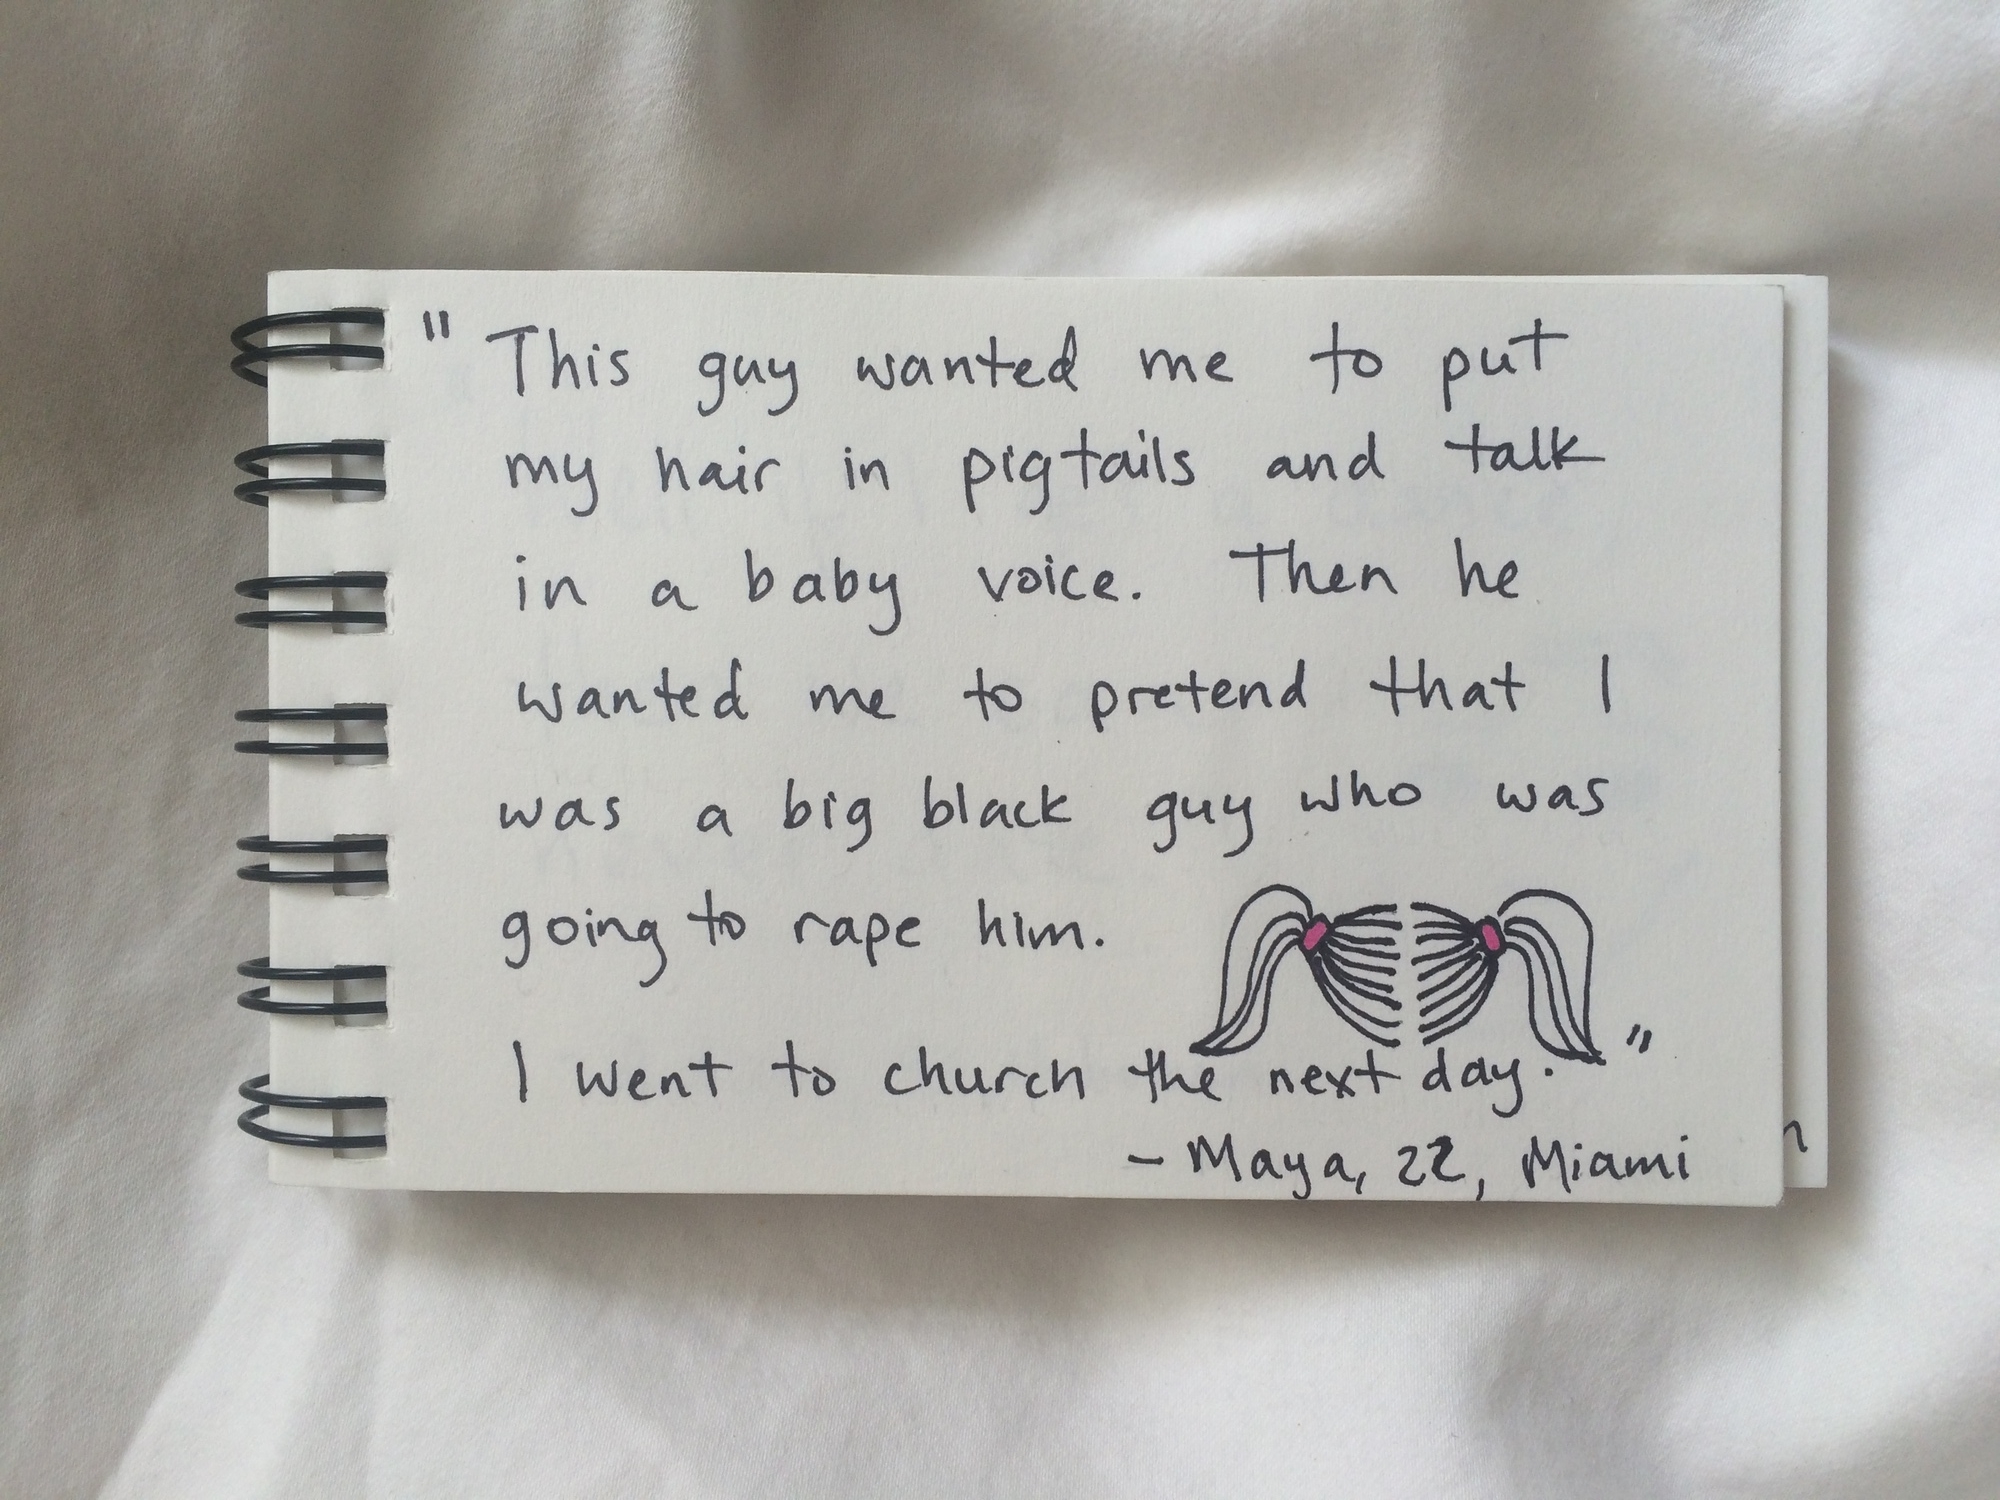 " This guy wanted me to put
my hair in pigtails and talk
in a baby voice. Then he
wanted me to pretend that I
was a big black guy who was
going to rape him.
I went to church the next day. "
- Maya, 22, Miami